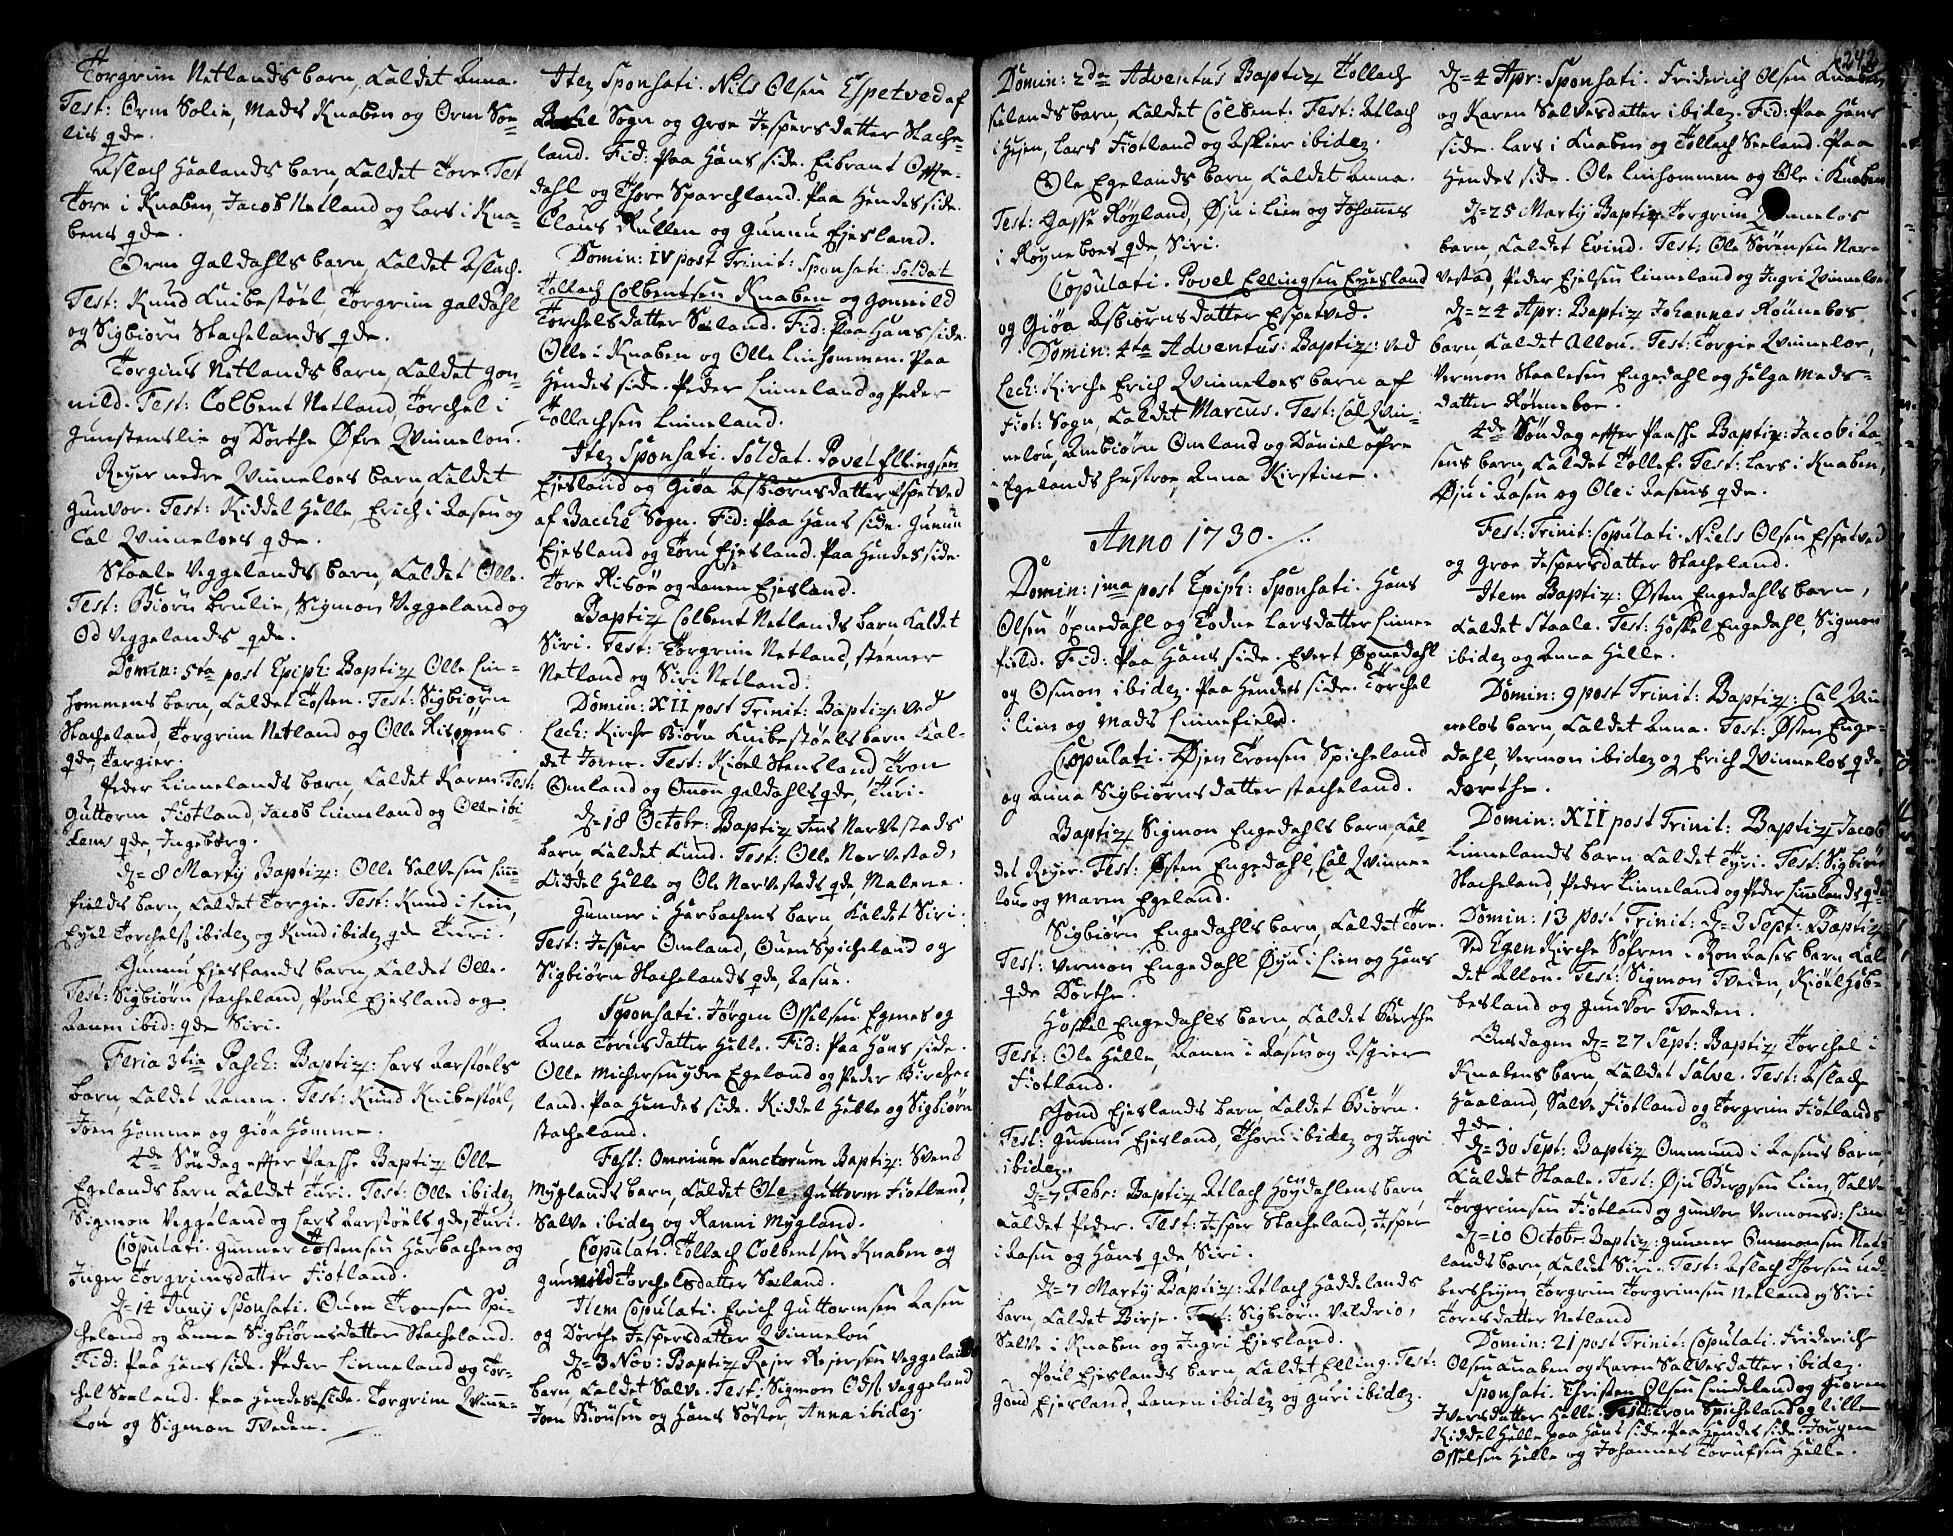 Torgrim Netlands barn, kaldet Anna.
Test: Orm Solie, Mads Knaben og Orm So-
lies qde.
Aslach Haalands barn, kaldet Tore. Test
Tore i Knaben, Jacob Netland og Lars i Kna-
bens qde.
Orm Galdahls barn, kaldet Aslach.
Test: Knud Knibestøel, Torgrim Galdahl
og Sigbiørn Stachelands qde.
Torgius Netlands barn, kaldet Gon-
nild. Test: Colbent Netland, Torchel i
Gunstenslie og Dorthe Øfre Qvinnelou.
Reyer nedre Qvinneloes barn, kaldet
Gunvor. Test: Kiddel Helle, Erich i Aasen og
Cal Qvinneloes qde.
Staale Veggelands barn, kaldet Olle.
Test: Biørn Brulie, Sigmon Veggeland og
Od Veggelands qde.
Domin: 5ta post Epiph: Baptiz Olle Lin-
hommens barn, kaldet Tosten. Test: Sigbiørn
Stacheland, Torgrim Netland og Olle Risøens
qde, Torgier.
Peder Linnelands barn, kaldet Karen. Test:
Guttorm Fiotland, Jacob Linneland og Olle ibi-
dems qde, Ingeborg.
d= 8 Martij Baptiz: Olle Salvesen Linne-
fields barn, kaldet Torgie. Test: Knud i Lien,
Eyel Torchels: ibidez og Knud ibidez qde Turi.
Gunnu Ejeslands barn, kaldet Olle.
Test: Sigbiørn Stacheland, Poul Ejesland og
Aanen ibid: qde Siri.
Feria 3tia Pasch: Baptiz: Lars Aarstøels
barn, kaldet Aanen. Test: Knud Knibestøel,
Joen Homme og Giøa Homme.
4de Søndag efter Paasche Baptiz Olle
Egelands barn kaldet Turi. Test: Olle ibidez
Sigmon Veggeland og Lars Aarstøels qde, Turi.
Copulati. Gunner Tostensen Harbachen og
Inger Torgrimsdatter Fiotland.
d= 14 Junij Sponsati. Ouen Tronsen Spi-
cheland og Anna Sigbiørnsdatter Stacheland.
Fid: Paa Hans side. Peder Linneland og Tor-
chel Seeland. Paa Hendes side. Torgrim Qvinne-
lou og Sigmon Tveden.
Itez Sponsati. Nils Olsen Espetved af
Bache Sogn og Groe Jespersdatter Stache-
land. Fid: Paa Hans side. Eibrant Ofte-
dahl og Thore Sparchland. Paa Hendes side.
Claus Rullen og Gunnu Ejesland.
Domin: IV post Trinit: Sponsati. Soldat
Tollach Colbentsen Knaben og Gonnild
Torchelsdatter Seeland. Fid: Paa Hans side.
Olle i Knaben og Olle Linhommen. Paa
Hendes side. Peder Linneland og Peder
Tollachsen Linneland.
Itez Sponsati. Soldat. Povel Ellingsen
Ejesland og Giøa Asbiørnsdatter Espetved
af Bacche Sogn. Fid: Paa Hans side. Gunnu
Ejesland og Toru Ejesland. Paa Hendes side
Tore Risøe og Aanen Ejesland.
Baptiz Colbent Netlands barn kaldet
Siri. Test: Torgrim Netland, Steener
Netland og Siri Netland.
Domin: XII post Trinit: Baptiz: ved
Lech: Kirche Biørn Knibestøels barn kal-
det Joren. Test: Kiøel Stensland, Tron
Omland og Omon Galdahls qde, Turi.
d= 18 Octobr: Baptiz Jens Narvestads
barn, kaldet Knud. Test: Olle Narvestad,
Kiddel Helle og Ole Narvestads qde, Malene.
Gunner i Harbachens barn, kaldet Siri.
Test: Jesper Omland, Ouen Spicheland og
Sigbiørn Stachelands qde, Aasne.
Sponsati. Jørgen Osselsen Egenes og
Anna Torusdatter Helle. Fid: Paa Hans side.
Olle Michersen ydre Egeland og Peder Birche-
land. Paa Hendes side. Kiddel Helle og Sigbiørn
Stacheland.
Fest: Omnium Sanctorum Baptiz: Svend
Myglands barn, kaldet Ole. Guttorm Fiotland,
Salve ibidez og Ranni Mygland.
Copulati. Tollach Colbentsen Knaben og
Gunnild Torchelsdatter Seeland.
Item Copulati. Erich Guttormsen Aasen
og Dorthe Jespersdatter Qvinnelou
d= 3 Nov: Baptiz Rejer Rejersen Veggelands
barn, kaldet Salve. Test: Sigmon Ods: Veggeland
Joen Biønsen og Hans Søster, Anna ibidez.
242
Domin: 2da Adventus Baptiz Tollach
Seelands barn, kaldet Colbent. Test: Atlach
i Hejen, Lars Fiotland og Askier ibidez.
Ole Egelands barn, kaldet Anna.
Test: Gasse Røyland, Øju i Lien og Johannes
i Røyneboes qde, Siri.
Copulati. Povel Ellingsen Eyesland
og Giøa Asbiørnsdatter Espetved.
Domin: 4ta Adventus: Baptiz: ved
Lech: Kirche Erich Qvinneloes barn af
Fiot: Sogn, kaldet Marcus. Test: Cal Qvin-
nelou, Ambiørn Omland og Daniel øfre
Egelands hustroe, Anna Kirstine.
Anno 1730.
Domin: 1ma post Epiph: Sponsati. Hans
Olsen Øpnedahl og Todne Larsdatter Linne-
field. Fid: Paa Hans side. Evert Øpnedahl
og Osmon ibidez. Paa Hendes side. Torchel
i Lien og Mads Linnefield.
Copulati. Øjen Tronsen Spicheland
og Anna Sigbiørnsdatter Stacheland.
Baptiz Sigmon Engedahls barn, kal-
det Reyer. Test: Østen Engedahl, Cal Qvinne-
lou og Maren Egeland.
Sigbiørn Engedahls barn, kaldet Tore.
Test: Vermon Engedahl Øyu i Lien og Hans
qde Dorthe.
Hoskel Engedahls barn, kaldet Berthe
Test: Ole Helle, Aanen i Aasen og Asgier
Fiotland.
Gond Ejeslands barn kaldet Biørn.
Test: Gunnu Ejesland, Thoru ibidez og Ingri
ibidez.
d= 7 Febr: Baptiz Atlach Høydahlens barn
kaldet Peder. Test: Jesper Stacheland, Jesper
i Aasen og Hans qde, Siri.
d= 7 Martij Baptiz: Atlach Haddelands
barn, kaldet Birje. Test: Sigbiørn Valdrio,
Salve i Knaben og Ingri Ejesland.
Poul Ejeslands barn, kaldet Elling. Test:
Gond Ejesland, Aanen ibidez og Guri ibidez.
d= 4 Apr: Sponsati. Friderich Olsen Knaben
og Karen Salvesdatter ibidez. Fid: Paa Hans
side. Lars i Knaben og Tollach Seeland. Paa
Hendes side. Ole Linhommen og Ole i Knaben
d= 25 Martij Baptiz Torgrim Qvinneloes
barn, kaldet Evind. Test: Ole Sørensen Nar-
vestad, Peder Ejelsen Linneland og Ingri Qvinneloe
d= 24 Apr: Baptiz Johannes Rønneboes
barn, kaldet Allou. Test: Torgie Qvinneloe,
Vermon Staalesen Engedahl og Helga Mads-
datter Rønneboe.
4de Søndag efter Paasche Baptiz: Jacob i Aa-
sens barn, kaldet Tollef. Test: Lars i Knaben,
Øju i Aasen og Ole i Aasens qde.
Fest: Trinit: Copulati. Niels Olsen Espetved
og Groe Jespersdatter Stacheland.
Item Baptiz: Østen Engedahls barn,
kaldet Staale. Test: Hoskel Engedahl, Sigmon
ibidez og Anna Helle.
Domin: 9 post Trinit: Baptiz: Cal Qvin-
nelos barn, kaldet Anna. Test: Østen Enge-
dahl, Vermon ibidez og Erich Qvinnelos qde,
Dorthe.
Domin: XII post Trinit: Baptiz Jacob
Linnelands barn, kaldet Tyri. Test: Sigbiørn
Stacheland, Peder Linneland og Peder Linnelands qde
Domin: 13 post Trinit: d= 3 Sept: Baptiz
ved Egen Kirche Søfren i Ron Aases barn kal-
det Allon. Test: Sigmon Tveden, Kiøel Hob-
besland og Gunvor Tveden.
Onsdagen d= 27 Sept: Baptiz Torchel i
Knabens barn, kaldet Salve. Test: Aslach
Haaland, Salve Fiotland og Torgrim Fiotlands
qde
d= 30 Sept: Baptiz Ommund i Aasens barn,
kaldet Staale. Test: Øju Lien, Salve
Torgrimsen Fiotland og Gunvor Vermonsd: Lien
d= 10 Octobr Baptiz: Gunner Ommonsen Net-
lands barn, kaldet Siri. Test: Aslach Thorsen ud-
bershejen Torgrim Torgrimsen Netland og Siri
Toresdatter Netland
Domin: 21 post Trinit: Copulati. Friderich
Olsen Knaben og Karen Salvesdatter ibidez.
Sponsati. Christen Olsen Lindeland og Gioren
Iversdatter Helle. Test: Tron Spicheland og lille
Kiddel Helle paa Hans side. Paa Hendes side. Jørgen
Osselsen Helle og Johannes Torufsen Helle.